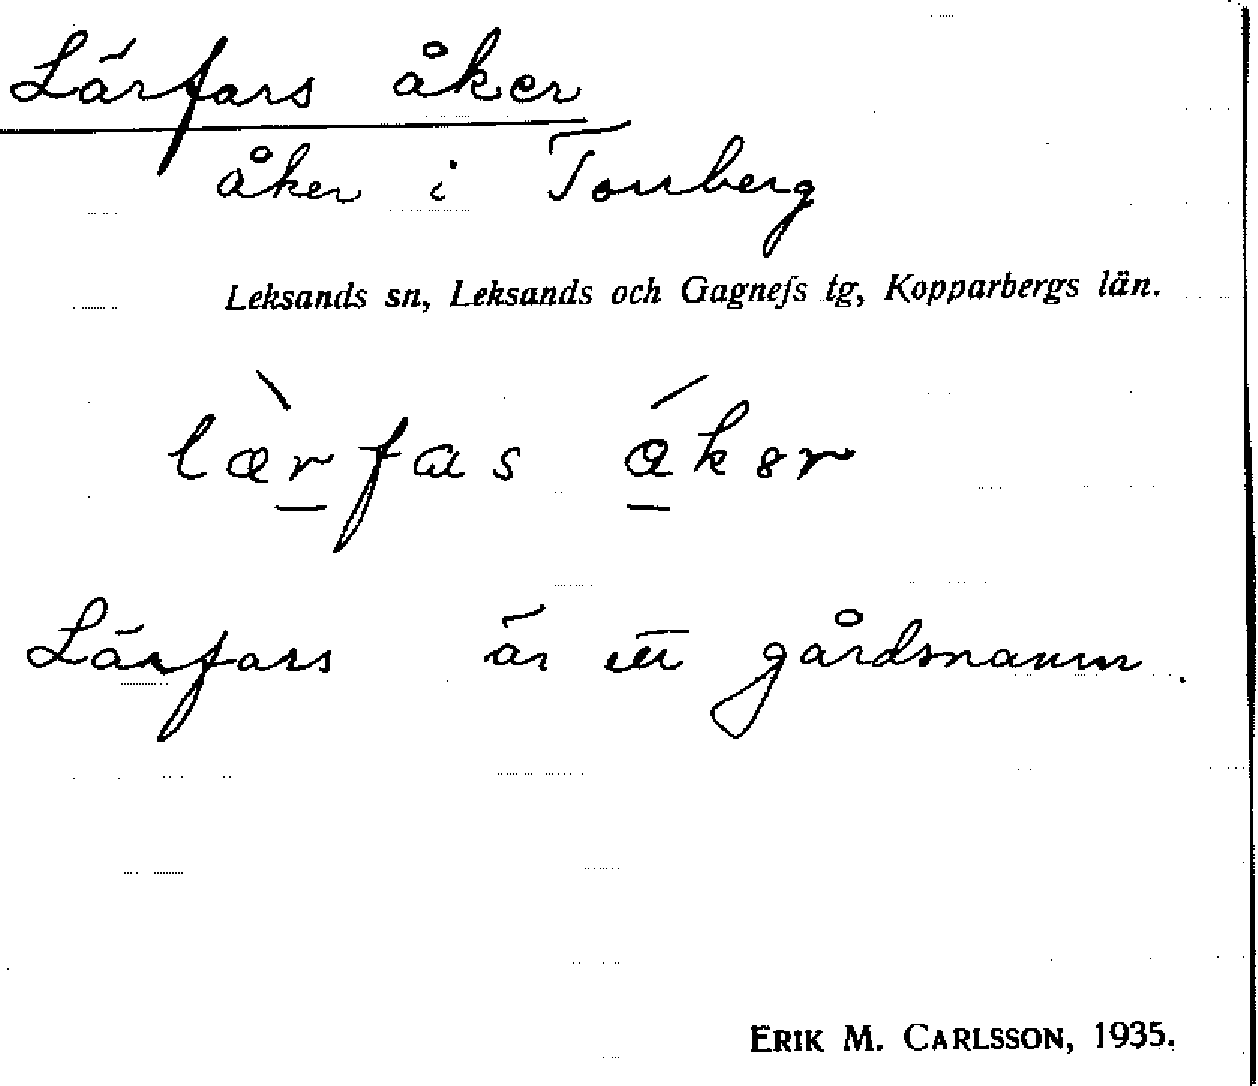 Lärfars åker
åker i Torrberg
Leksands sn, Leksands och Gagnefs tg, Kopparbergs län.
Lärfars är ett gårdsnamn.
ERIK M. CARLSSON, 1935.